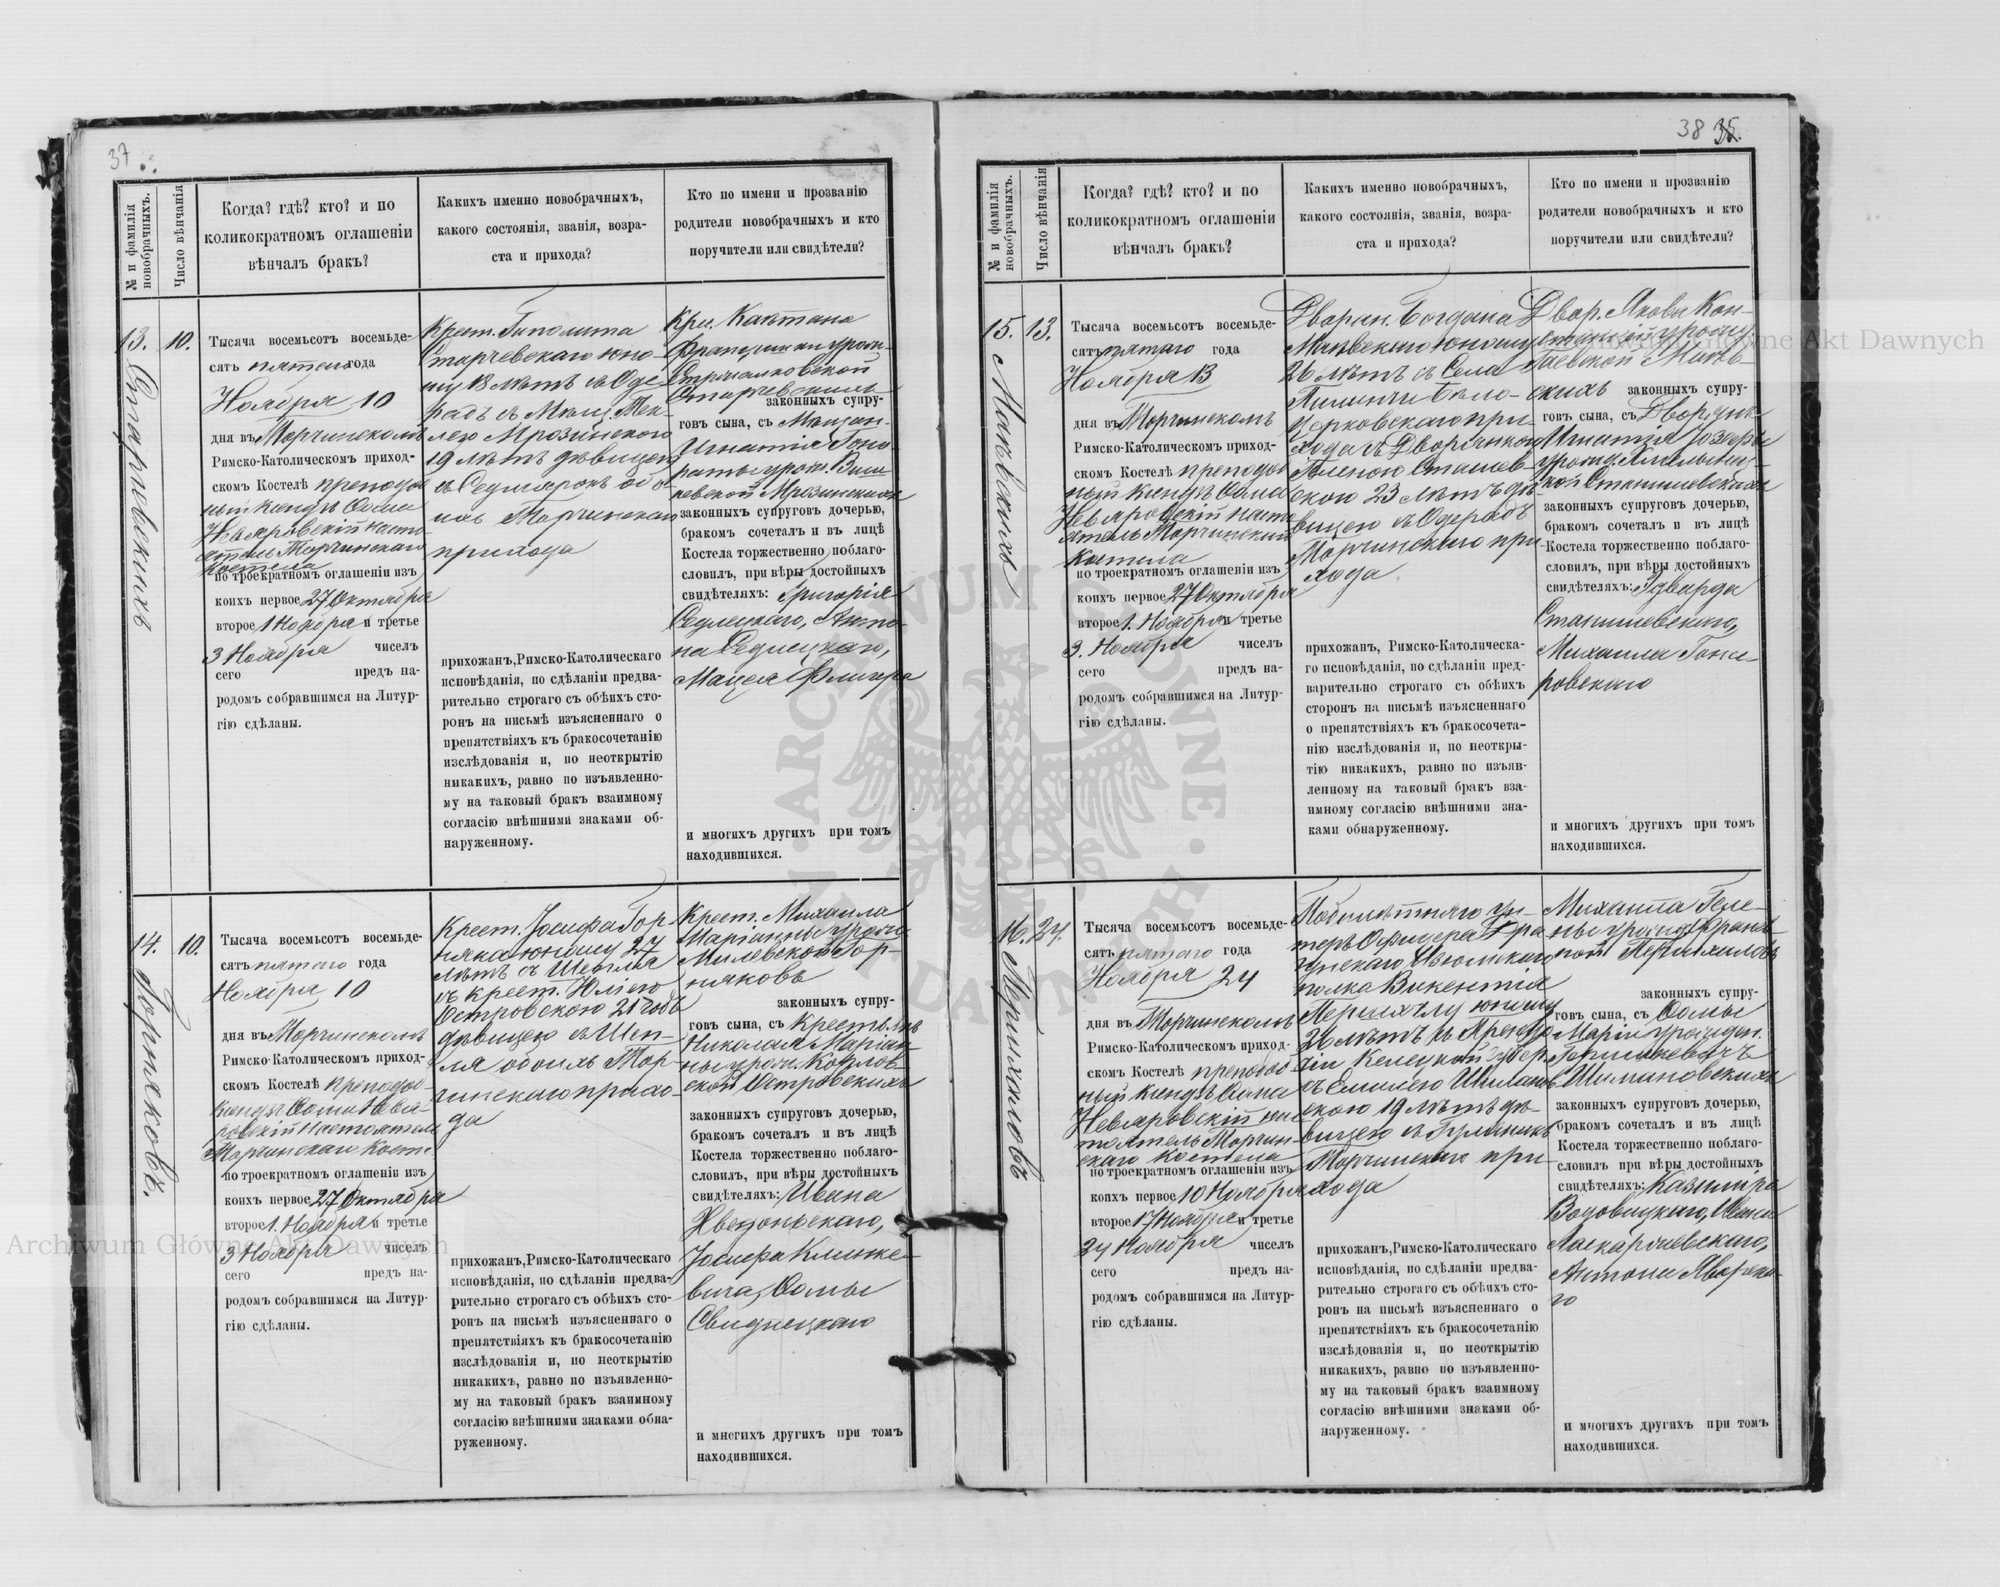 37
№ и фамилія новобрачныхъ.
Число вѣнчанія
Когда? гдѣ? кто? и по
коликократномъ оглашеніи
вѣнчалъ бракъ?
Какихъ именно новобрачныхъ,
какого состоянія, званія, возра-
ста и прихода?
Кто по имени и прозванію
родители новобрачныхъ и кто
поручители или свидѣтели?
13.
Старчевскихъ
10.
Тысяча восемьсот восемьде-
сять пятаго года
Ноября 10
дня въ Торчинскомъ
Римско-Католическомъ приход-
скомъ Костелѣ преподоб
ный ксендзъ Ѳома
Неваровскій насто
ятель Торчинскаго
Костела
по троекратномъ оглашеніи изъ
коихъ первое 27 Октября
второе 1 Ноября и третье
3 Ноября чиселъ
сего предъ на-
родомъ собравшимся на Литур-
гію сдѣланы.
Крест. Гиполита
Старчевскаго юно-
шу 18 лѣтъ съ Оде
радъ съ Мѣщ. Тек-
лею Мрозинскою
19 лѣтъ дѣвицею
съ Седмярокъ обо
ихъ Торчинскаго
прихода
прихожан, Римско-Католическаго
исповѣдания, по сдѣланіи предва-
рительно строгаго съ обѣихъ сто-
ронъ на письмѣ изъясненнаго о
препятствіяхъ къ бракосочетанію
изслѣдованія и, по неоткрытію
никакихъ, равно по изъявленно-
му на таковый бракъ взаимному
согласію внѣшними знаками об-
наруженному.
Кре. Каетана
Францишки урожд.
Стржалковской
Старчевскихъ
законныхъ супру-
говъ сына, съ Мѣщан.
Игнатія Гоно
раты урожд. Виш
невской Мрозинскихъ
законныхъ супруговъ дочерью,
бракомъ сочеталъ и въ лицѣ
Костела торжественно поблаго-
словилъ, при вѣры достойныхъ
свидѣтеляхъ: Григорія
Седлецкаго, Анто-
на Седлецкаго,
Мацея Флигера
и многихъ другихъ при томъ
находившихся.
14.
Горняковъ.
10.
Тысяча восемьсот восемьде-
сять пятаго года
Ноября 10
дня въ Торчинскомъ
Римско-Католическомъ приход-
скомъ Костелѣ преподоб-
ксендзъ Ѳома Нева-
ровскій Настоятель
Торчинскаго Косте.
по троекратномъ оглашеніи изъ
коихъ первое 27 Октября
второе 1. Ноября и третье
3 Ноября чиселъ
сего предъ на-
родомъ собравшимся на Литур-
гію сдѣланы.
Крест. Іосифа Гор
няка юношу 27
лѣтъ съ Шепля
съ Крест. Юліею
Островскою 21 годъ
дѣвицею съ Шеп-
ля обоихъ Тор-
чинскаго прихо-
да
прихожан, Римско-Католическаго
исповѣданія, по сдѣланіи предва-
рительно строгаго съ обѣихъ сто-
ронъ на письмѣ изъясненнаго о
препятствіяхъ къ бракосочетанію
изслѣдованія и, по неоткрытію
никакихъ, равно по изъявленно-
му на таковый бракъ взаимному
согласію внѣшними знаками обна-
руженному.
Крест. Михаила
Маріанны урожд.
Милевской Гор-
няковъ
законныхъ супру-
говъ сына, съ Крестьянъ
Николая Маріан-
ны урожд. Козлов-
ской Островскихъ
законныхъ супруговъ дочерью,
бракомъ сочеталъ и въ лицѣ
Костела торжественно поблаго-
словилъ, при вѣры достойныхъ
свидѣтеляхъ: Ивана
Іосифа Климке-
вича, Ѳомы
Свиднецкаго
и многихъ другихъ при томъ
находившихся.
38 35.
№ и фамилія новобрачныхъ.
Число вѣнчанія
Когда? гдѣ? кто? и по
коликократномъ оглашеніи
вѣнчалъ бракъ?
Какихъ именно новобрачныхъ,
какого состоянія, званія, возра-
ста и прихода?
Кто по имени и прозванію
родители новобрачныхъ и кто
поручители или свидѣтели?
15.
13.
Тысяча восемьсот восемьде-
сять пятаго года
Ноября 13
дня въ Торчинскомъ
Римско-Католическомъ приход-
скомъ Костелѣ преподоб
ный ксендзъ Ѳома
Неваровскій насто
ятель Торчинскаго
Костела
по троекратномъ оглашеніи изъ
коихъ первое 27 Октября
второе 1. Ноября и третье
3. Ноября чиселъ
сего предъ на-
родомъ собравшимся на Литур-
гію сдѣланы.
Дворян. Богдана
юношу
26 лѣтъ съ Села
Бѣло-
церковскаго при-
хода съ Дворянкою
Еленою Станишев-
скою 23 лѣтъ дѣ-
вицею съ Одерадъ
Торчинскаго при
хода.
прихожан, Римско-Католическа-
го исповѣданія, по сдѣланіи пред-
варительно строгаго съ обѣихъ
сторонъ на письмѣ изъясненнаго
о препятствіяхъ къ бракосочета-
нію изслѣдованія и, по неоткры-
тію никакихъ, равно по изъяв-
ленному на таковый бракъ вза-
имному согласію внѣшними зна-
ками обнаруженному.
Двор. Якова Кон-
законныхъ супру-
говъ сына, съ Дворянъ
Игнатія Іозефы
урожд. Хмельниц-
кой Станишевскихъ
законныхъ супруговъ дочерью,
бракомъ сочеталъ и въ лицѣ
Костела торжественно поблаго-
словилъ, при вѣры достойныхъ
свидѣтеляхъ: Эдварда
Станишевскаго,
Михаила
и многихъ другихъ при томъ
находившихся.
16.
Першхаловъ
24.
Тысяча восемьсот восемьде-
сять пятаго года
Ноября 24
дня въ Торчинскомъ
Римско-Католическомъ приход-
скомъ Костелѣ преподоб
ный ксендзъ Ѳома
Неваровскій нас
тоятель Торчин-
скаго Костела
по троекратномъ оглашеніи изъ
коихъ первое 10 Ноября
второе 17 Ноября и третье
24 Ноября чиселъ
сего предъ на-
родомъ собравшимся на Литур-
гію сдѣланы.
полка Викентія
юношу
26 лѣтъ
Келецкой губер.
съ Емиліею Шиманов-
скою 19 лѣтъ дѣ-
вицею съ
Торчинскаго при-
хода
прихожан, Римско-Католическаго
исповѣданія, по сдѣланіи предва-
рительно строгаго съ обѣихъ сто-
ронъ на письмѣ изъясненнаго о
препятствіяхъ къ бракосочетанію
изслѣдованія и, по неоткрытію
никакихъ, равно по изъявленно-
му на таковый бракъ взаимному
согласію внѣшними знаками об-
наруженному.
Михаила Геле-
ны урожд. Фран-
законныхъ супру-
говъ сына, съ Ѳомы
Маріи урожден.
Шимановскихъ
законныхъ супруговъ дочерью,
бракомъ сочеталъ и въ лицѣ
Костела торжественно поблаго-
словилъ, при вѣры достойныхъ
свидѣтеляхъ: Казиміра
Антона Яворска-
го
и многихъ другихъ при томъ
находившихся.
Archiwum Główne Akt Dawnych
Archiwum Główne Akt Dawnych
ARCHIWUM GŁÓWNE AKT DAWNYCH